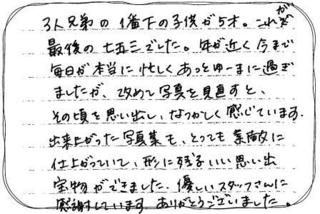 3人兄弟の1番下の子供が5才。これが
最後の七五三でした。年が近く今まで
毎日が本当に忙しくあっとゆーまに過ぎ
ましたが、改めて写真を見直すと、
その頃を思い出し、なつかしく感じています。
出来上がった写真集も、とっても素敵に
仕上がっていて、形に残るいい思い出
宝物ができました。優しいスタッフさんに
感謝しています。ありがとうございました。